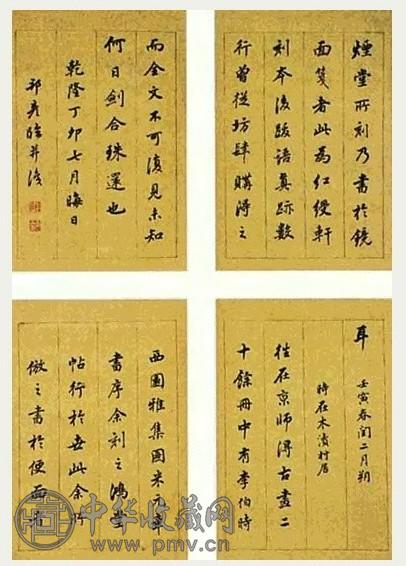 煙堂所刻乃書於鏡
面箋者此為紅綬軒
刻本後跋語真跡數
行曾從坊肆購得之
而全文不可復見未知
何日劍合珠還也
乾隆丁卯七月晦日
耳
壬寅春閏二月朔
時在木瀆村居
往在京師得古畫二
十餘冊中有李伯時
西園雅集圖米元章
書序余刻之鴻堂
帖行於世此余所
倣之書於便面者
中华收藏网
www.pmv.cn